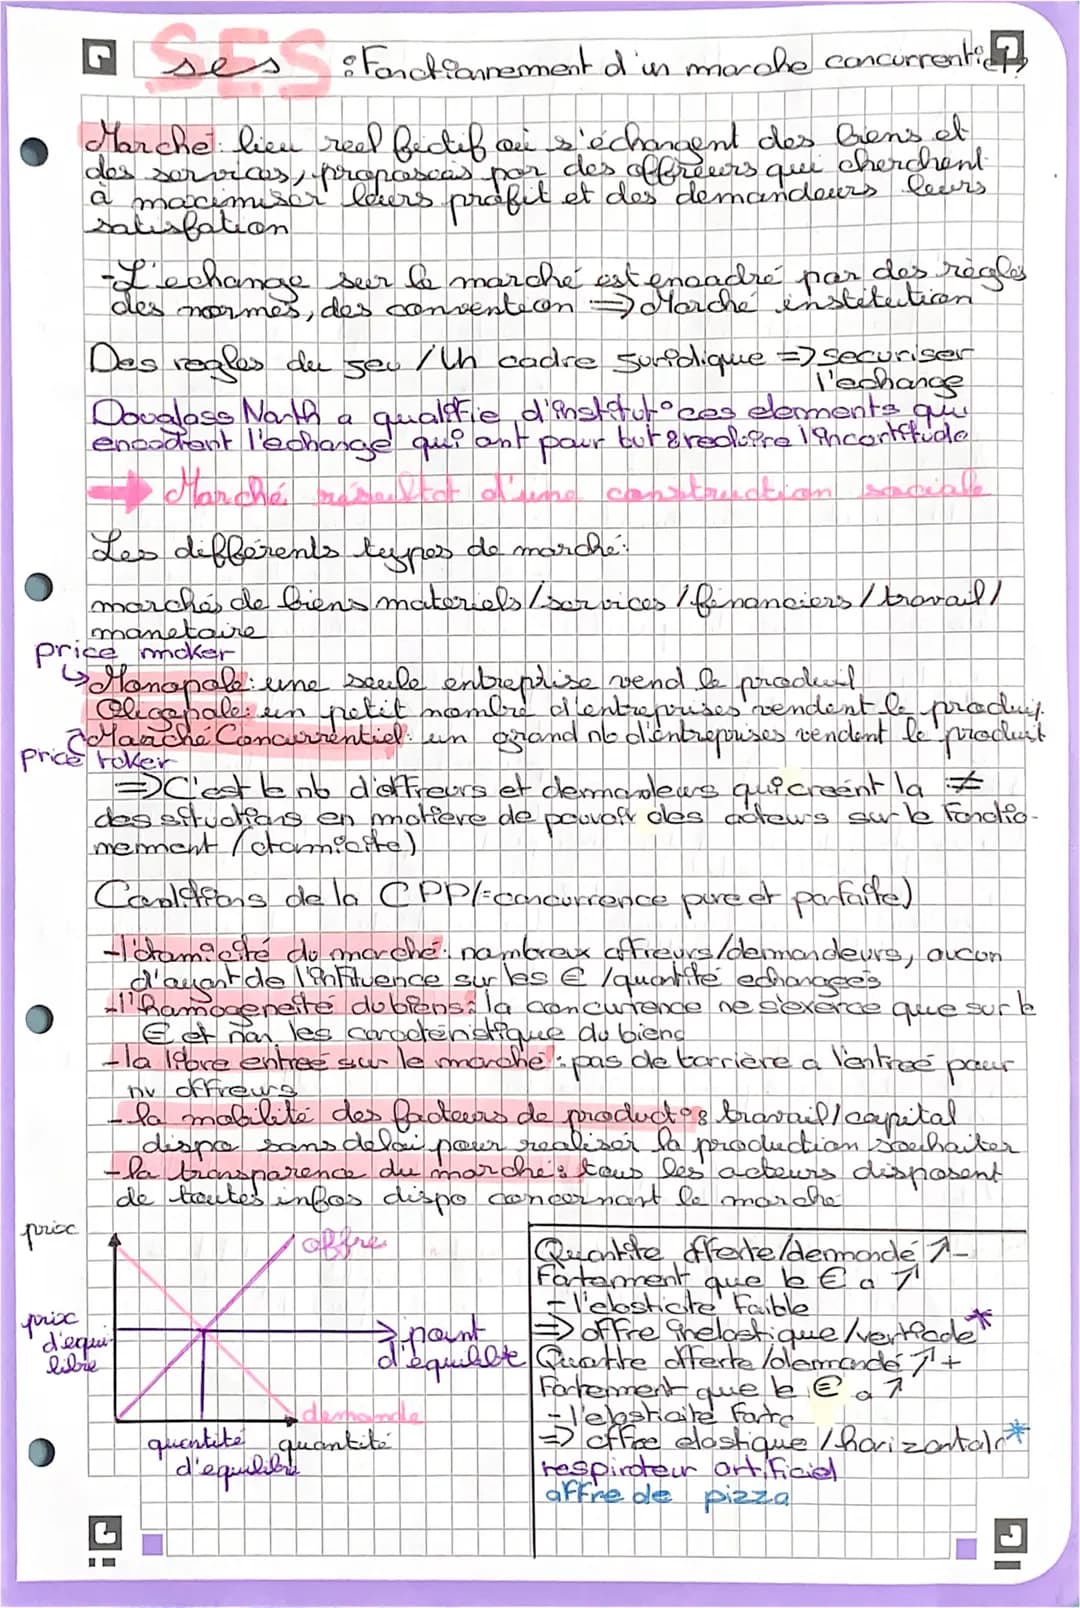 SES
ses : Fonctionnement d'un marche concurrentiel
Marché: lieu reel fictif où s'échangent des biens et
des services, proposeés par des offreurs qui cherchent
à maximiser leurs profit et des demandeurs leurs
satisfation
-L'echange sur le marché est encadré par des règles
des normes, des convention => Marché institution
Des regles du jeu / Un cadre juridique => securiser
l'echange
Douglass North a qualifie d'institut° ces elements qui
encadrent l'echange qui ont pour but : reduire l'incertitude
→ Marché résultat d'une construction sociale
Les différents types de marché:
marchés de biens materiels / services / financiers / travail /
monetaire
price maker
↳ Monopole: une seule entreprise vend le produit
Oligopole: un petit nombre d'entreprises vendent le produit
Marché Concurrentiel: un grand nb d'entreprises vendent le produit
price taker
=> C'est le nb d'offreurs et demandeurs qui creént la ≠
des situations en matière de pouvoir des acteurs sur le fonctio-
nement (atomicite)
Conditions de la CPP (=concurrence pure et parfaite)
-l'atomicité du marché: nombreux offreurs/demandeurs, aucun
d'ayant de l'influence sur les € /quantité echangeés
-l'homogeneité du biens: la concurence ne s'exerce que sur le
€ et non les caractéristique du biens
-la libre entreé sur le marché : pas de barrière a l'entreé pour
nv offreurs
-la mobilité des facteurs de product° : travail/capital
dispo sans delai pour realiser la production souhaiter
-la transparence du marché : tous les acteurs disposent
de toutes infos dispo concernant le marche
prix
offre
prix
d'equi-
libre
point
d'équilibre
demande
quantité
quantité
d'equilibre
Quantite offerte/demandé ↗-
fortement que le € a ↗
- l'elasticite faible
=> offre inelastique/verticale*
Quantite offerte/demandé ↗+
fortement que le € a ↗
- l'elasticite forte
=> offre elastique / horizontale*
respirateur artificiel
offre de pizza